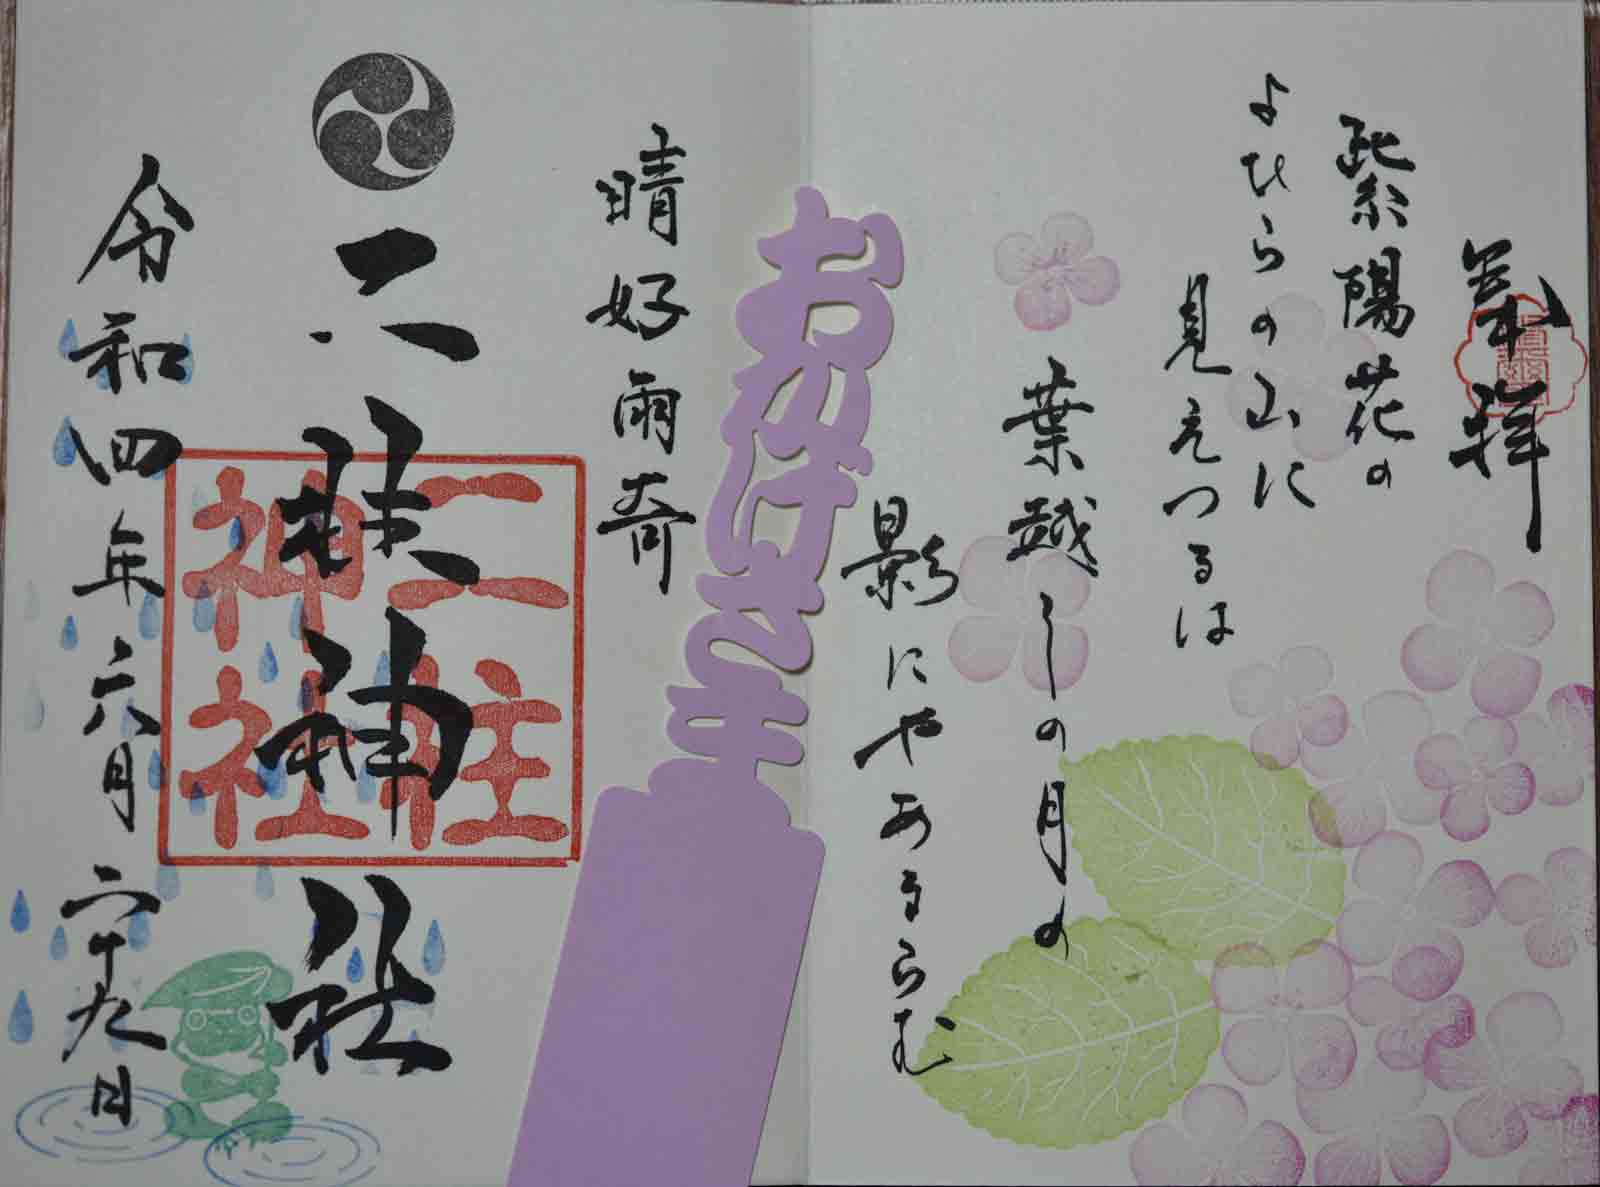 奉拝
紫陽花の
よひらの山に
見えつるは
葉越しの月の
影にやあるらむ
おかげさま
晴好雨奇
二柱神社
二柱
神社
令和四年六月二十九日